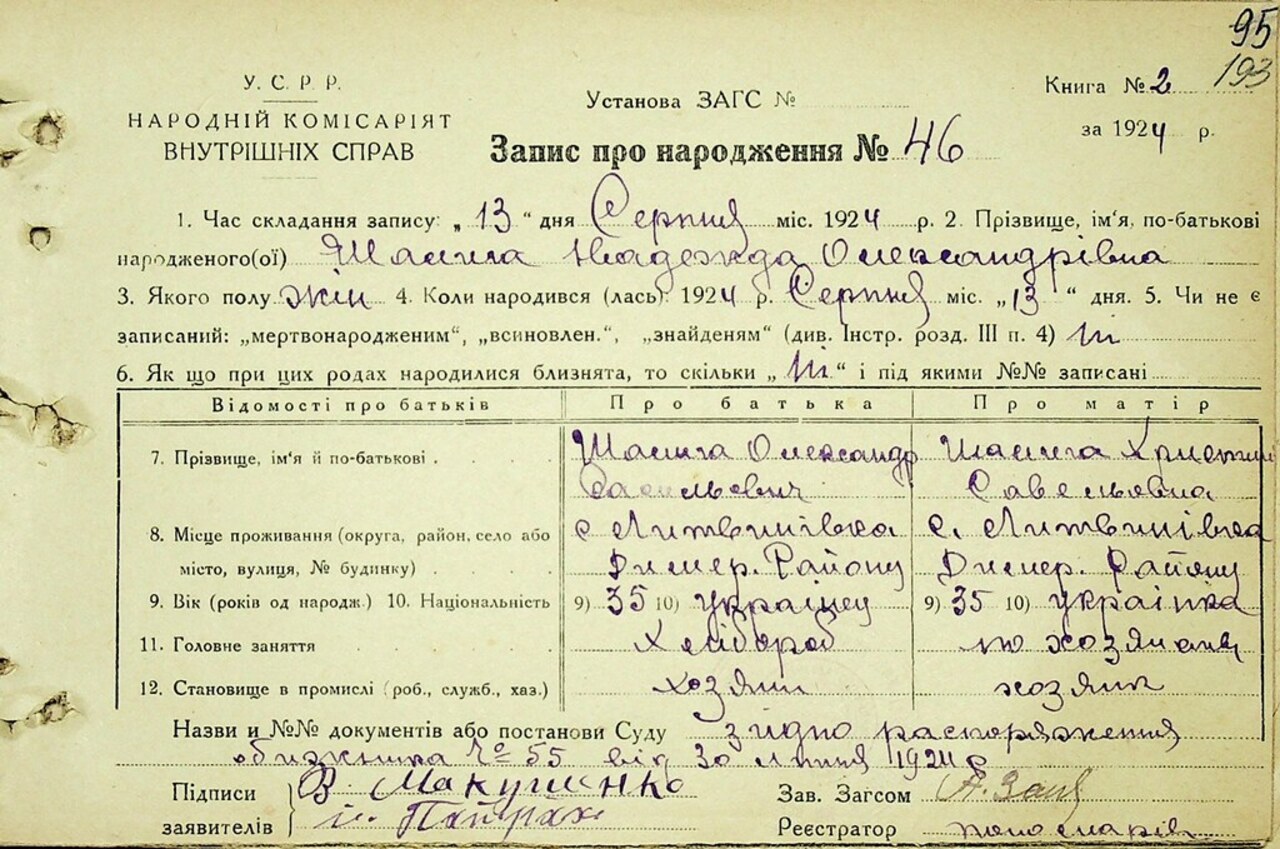 95
193
У. С. Р. Р.
НАРОДНІЙ КОМІСАРІЯТ
ВНУТРІШНІХ СПРАВ
Установа ЗАГС №
Книга № 2
за 1924 р.
Запис про народження № 46
1. Час складання запису: „13“ дня Серпня міс. 1924 р. 2. Прізвище, ім'я, по-батькові
народженого(ої) Надежда Олександрівна
3. Якого полу жін 4. Коли народився (лась) 1924 р. Серпня міс. „13“ дня. 5. Чи не є
записаний: „мертвонародженим“, „всиновлен.“, „знайденям“ (див. Інстр. розд. III п. 4) ні
6. Як що при цих родах народилися близнята, то скільки „ні“ і під якими №№ записані
Відомості про батьків Про батька Про матір
7. Прізвище, ім'я й по-батькові Олександр
Савельовна
8. Місце проживання (округа, район, село або с Литвинівка с. Литвинівка
місто, вулиця, № будинку) Димер. Району Димер. Району
9. Вік (років од народж.) 10. Національність 9) 35 10) українец 9) 35 10) українка
11. Головне заняття Хлібороб по хозяйств
12. Становище в промислі (роб., служб., хаз.) хозяин хозяик
Назви и №№ документів або постанови Суду згідно распоряження
обіжника № 55 від 30 липня 1924 р
Підписи
заявителів
В. Макушенко
Зав. Загсом
Реєстратор